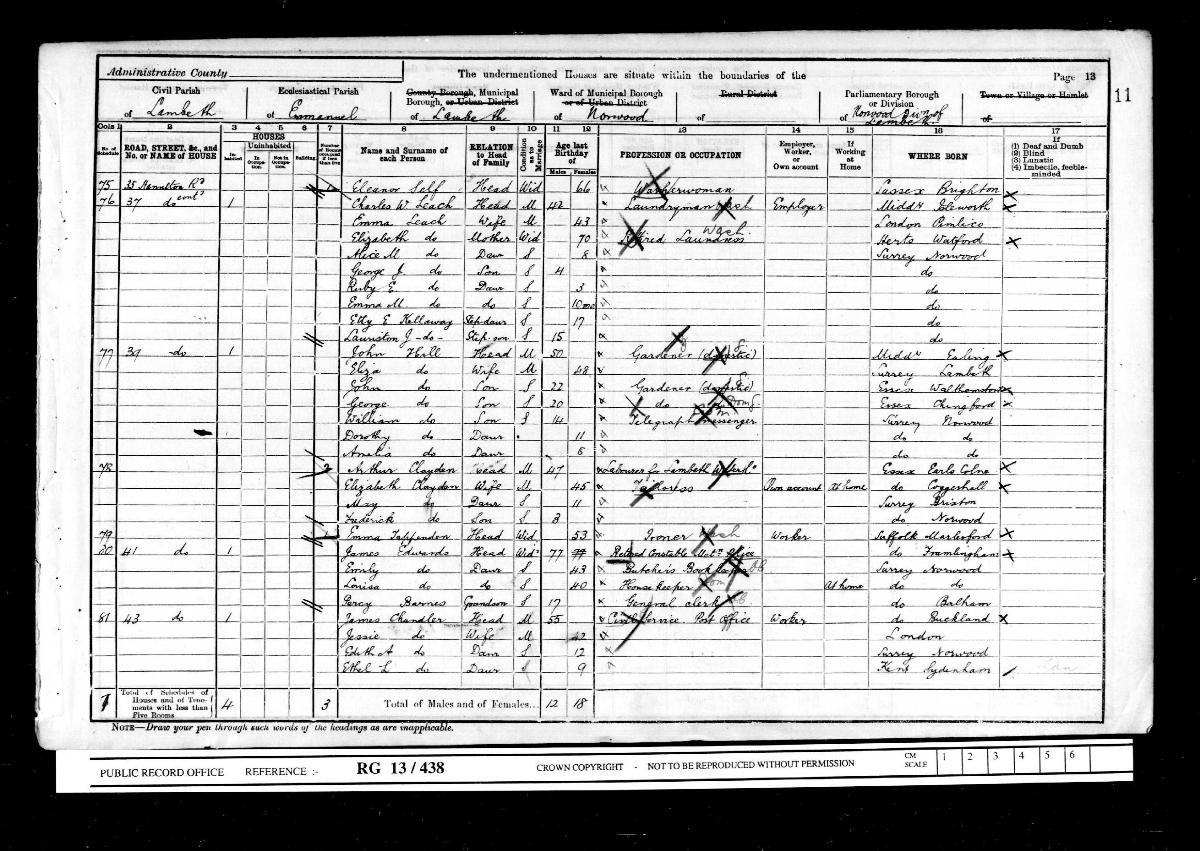 Administrative County
The undermentioned Houses are situate within the boundaries of the
Page 13
11
Civil Parish
of Lambeth
Ecclesiastical Parish
of Emmanuel
County Borough, Municipal Borough, or Urban District
of Lambeth
Ward of Municipal Borough or of Urban District
of Norwood
Rural District
of
Parliamentary Borough or Division
of Norwood Div. of Lambeth
Town or Village or Hamlet
of
Cols 1 2 3 4 5 6 7 8 9 10 11 12 13 14 15 16 17
No. of Schedule
ROAD, STREET, &c., and No. or NAME of HOUSE
HOUSES
Inhabited
Uninhabited
In Occupation
Not in Occupation
Building
Number of Rooms occupied if less than five
Name and Surname of each Person
RELATION to Head of Family
Condition as to Marriage
Age last Birthday of
Males Females
PROFESSION OR OCCUPATION
Employer, Worker, or Own account
If Working at Home
WHERE BORN
If (1) Deaf and Dumb (2) Blind (3) Lunatic (4) Imbecile, feeble-minded
75 35 Hamilton Rd contd Eleanor Self Head Wid 66 Washerwoman Sussex Brighton
76 37 do 1 Charles W Leach Head M 42 Laundryman Wash Employer Middx Isleworth
Emma Leach Wife M 43 London Pimlico
Elizabeth do Mother Wid 70 Retired Laundress Wash Herts Watford
Alice M do Daur S 8 Surrey Norwood
George J. do Son S 4 do
Ruby E do Daur S 3 do
Emma M. do do S 10 mo do
Etty E Kellaway Step-daur S 17 do
Lauriston J -do- Step-son S 15 do
77 39 -do 1 John Hill Head M 50 Gardener (domestic) Middx Ealing
Eliza do Wife M 48 Surrey Lambeth
John do Son S 22 Gardener (domestic) Essex Walthamstow
George do Son S 20 do Essex Chingford
William do Son S 14 Telegraph messenger Surrey Norwood
Dorothy do Daur 11 do do
Amelia do Daur 8 do do
78 2 Arthur Clayden Head M 47 Labourer for Lambeth Essex Earls Colne
Elizabeth Clayden Wife M 45 Tailoress Own account At home do Coggeshall
May do Daur S 11 Surrey Brixton
Frederick do Son S 8 do Norwood
79 1 Emma Head Wid 53 Ironer Wash Worker Suffolk Marlesford
80 41 do 1 James Edwards Head Widr 77 Retired Constable Metn Police do Framlingham
Emily do Daur S 43 Butcher's Book keeper Surrey Norwood
Louisa do do S 40 Housekeeper At home do do
Percy Barnes Grandson S 17 General clerk do Balham
81 43 do 1 James Chandler Head M 55 Civil Service Post Office Worker do Buckland
Jessie do Wife M 42 London
Edith A do Daur S 12 Surrey Norwood
Ethel L do Daur S 9 Kent Sydenham
7 Total of Schedules of Houses and of Tenements with less than Five Rooms 4 3 Total of Males and of Females... 12 18
NOTE—Draw your pen through such words of the headings as are inapplicable.
PUBLIC RECORD OFFICE REFERENCE :- RG 13 / 438 CROWN COPYRIGHT - NOT TO BE REPRODUCED WITHOUT PERMISSION CM SCALE 1 2 3 4 5 6